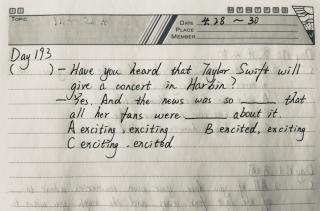 TOPIC
DATE 4.28 ~ 30
PLACE
MEMBER
Day 193
( ) - Have you heard that Taylor Swift will
give a concert in Harbin?
- Yes. And the news was so ____ that
all her fans were ____ about it.
A exciting, exciting B encited, exciting
C enciting. encited